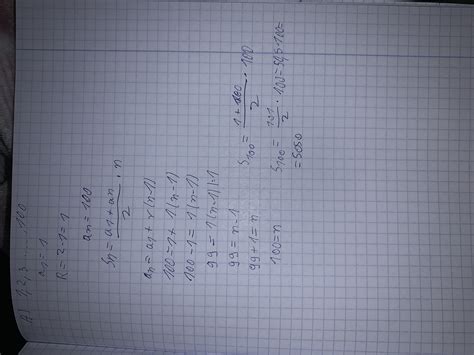 A) 1, 2, 3 ...... 100
a₁ = 1
R = 2 - 1 = 1
aₙ = 100
Sₙ = a₁ + aₙ / 2 · n
aₙ = a₁ + r(n-1)
100 = 1 + 1(n-1)
100 - 1 = 1(n-1)
99 = 1(n-1) |:1
99 = n - 1
99 + 1 = n
100 = n
S₁₀₀ = 1 + 100 / 2 · 100
S₁₀₀ = 101 / 2 · 100 = 50,5 · 100 =
= 5050